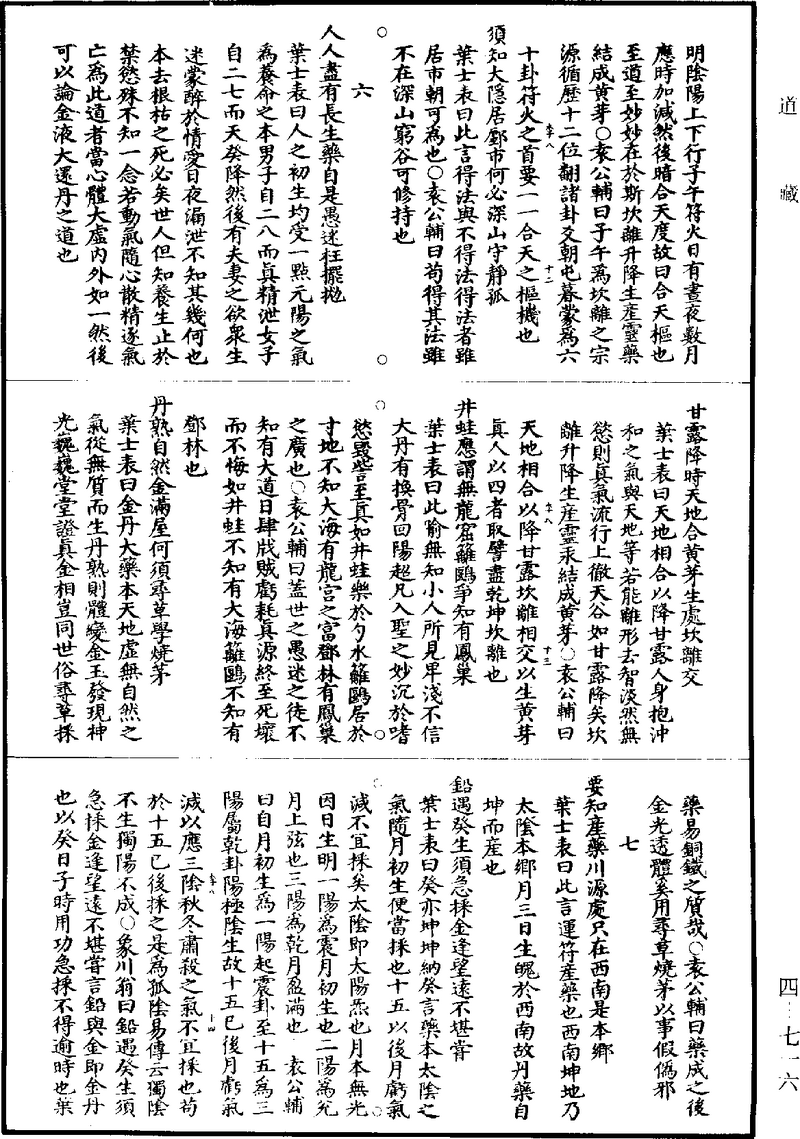 道藏
明陰陽上下行子午符火日有晝夜數月
應時加減然後暗合天度故曰合天樞也
至道至妙妙在於斯坎離升降生産靈藥
結成黄芽○袁公輔曰子午爲坎離之宗
源循歷十二位翻諸卦爻朝屯暮蒙爲六
十卦符火之首要一一合天之樞機也
須知大隱居鄽市何必深山守靜孤
葉士表曰此言得法與不得法得法者雖
居市朝可爲也○袁公輔曰苟得其法雖
不在深山窮谷可修持也
六
人人盡有長生藥自是愚迷枉擺抛
葉士表曰人之初生均受一點元陽之氣
為養命之本男子自二八而真精泄女子
自二七而天癸降然後有夫妻之欲衆生
迷蒙醉於情愛日夜漏泄不知其幾何也
本去根枯之死必矣世人但知養生止於
禁慾殊不知一念若動氣隨心散精逐氣
亡為此道者當心體太虛内外如一然後
可以論金液大還丹之道也
甘露降時天地合黄芽生處坎離交
葉士表曰天地相合以降甘露人身抱沖
和之氣與天地等若能離形去智淡然無
慾則真氣流行上徹天谷如甘露降矣坎
離升降生産靈汞結成黄芽○袁公輔曰
天地相合以降甘露坎離相交以生黄芽
真人以四者取譬盡乾坤坎離也
井蛙應謂無龍窟籬鷃爭知有鳳巢
葉士表曰此喻無知小人所見卑淺不信
大丹有換骨回陽超凡入聖之妙沉於嗜
慾毁訾至真如井蛙樂於勺水籬鷃居於
寸地不知大海有龍宫之富鄧林有鳳巢
之廣也○袁公輔曰蓋世之愚迷之徒不
知有大道日肆戕賊虧耗真源終至死壞
而不悔如井蛙不知有大海籬鷃不知有
鄧林也
丹熟自然金滿屋何須尋草學燒茅
葉士表曰金丹大藥本天地虛無自然之
氣從無質而生丹熟則體變金玉發現神
光巍巍堂堂證真金相豈同世俗尋草採
藥易銅鐵之質哉○袁公輔曰藥成之後
金光透體奚用尋草燒茅以事假僞邪
七
要知産藥川源處只在西南是本鄉
葉士表曰此言運符産藥也西南坤地乃
太陰本鄉月三日生魄於西南故丹藥自
坤而産也
鉛遇癸生須急採金逢望遠不堪嘗
葉士表曰癸亦坤坤納癸言藥本太陰之
氣隨月初生便當採也十五以後月虧氣
減不宜採矣太陰即太陽炁也月本無光
因日生明一陽為震月初生也二陽為兊
月上弦也三陽為乾月盈滿也 袁公輔
曰自月初生為一陽起震卦至十五為三
陽屬乾卦陽極陰生故十五已後月虧氣
減以應三陰秋冬肅殺之氣不宜採也苟
於十五已後採之是為孤陰易傳云獨陰
不生獨陽不成○象川翁曰鉛遇癸生須
急採金逢望遠不堪嘗言鉛與金即金丹
也以癸日子時用功急採不得逾時也葉
四-七一六